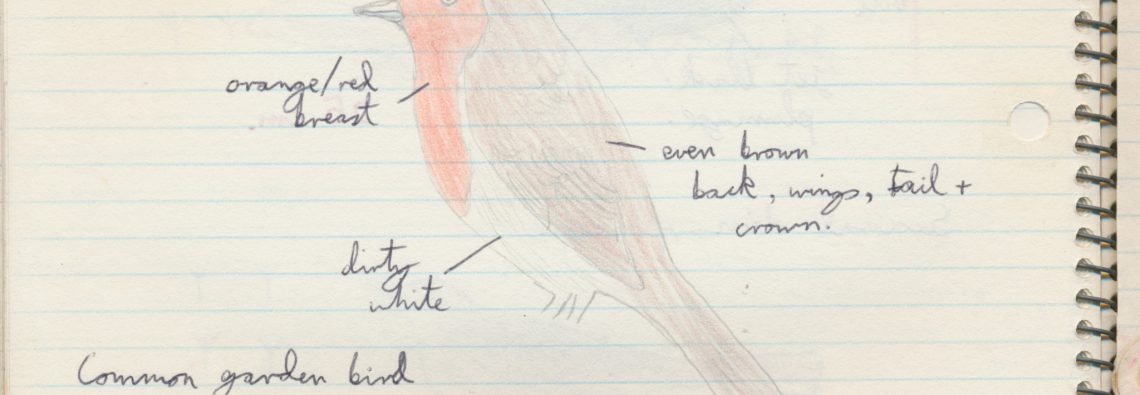 orange/red
breast
even brown
back, wings, tail +
crown.
dirty
white
Common garden bird